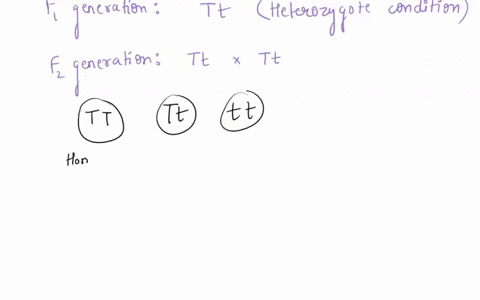 F₁ generation: Tt (Heterozygote condition)
F₂ generation: Tt × Tt
TT Tt tt
Hon